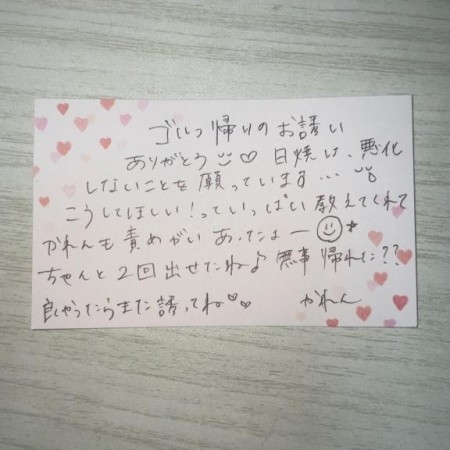 ゴルフ帰りのお誘い
ありがとう 日焼け、悪化
しないことを願っています…
こうしてほしい!っていっぱい教えてくれて
かれんも責めがいあったよー
ちゃんと2回出せたね♪無事帰れた??
良かったらまた誘ってね♡♡ かれん